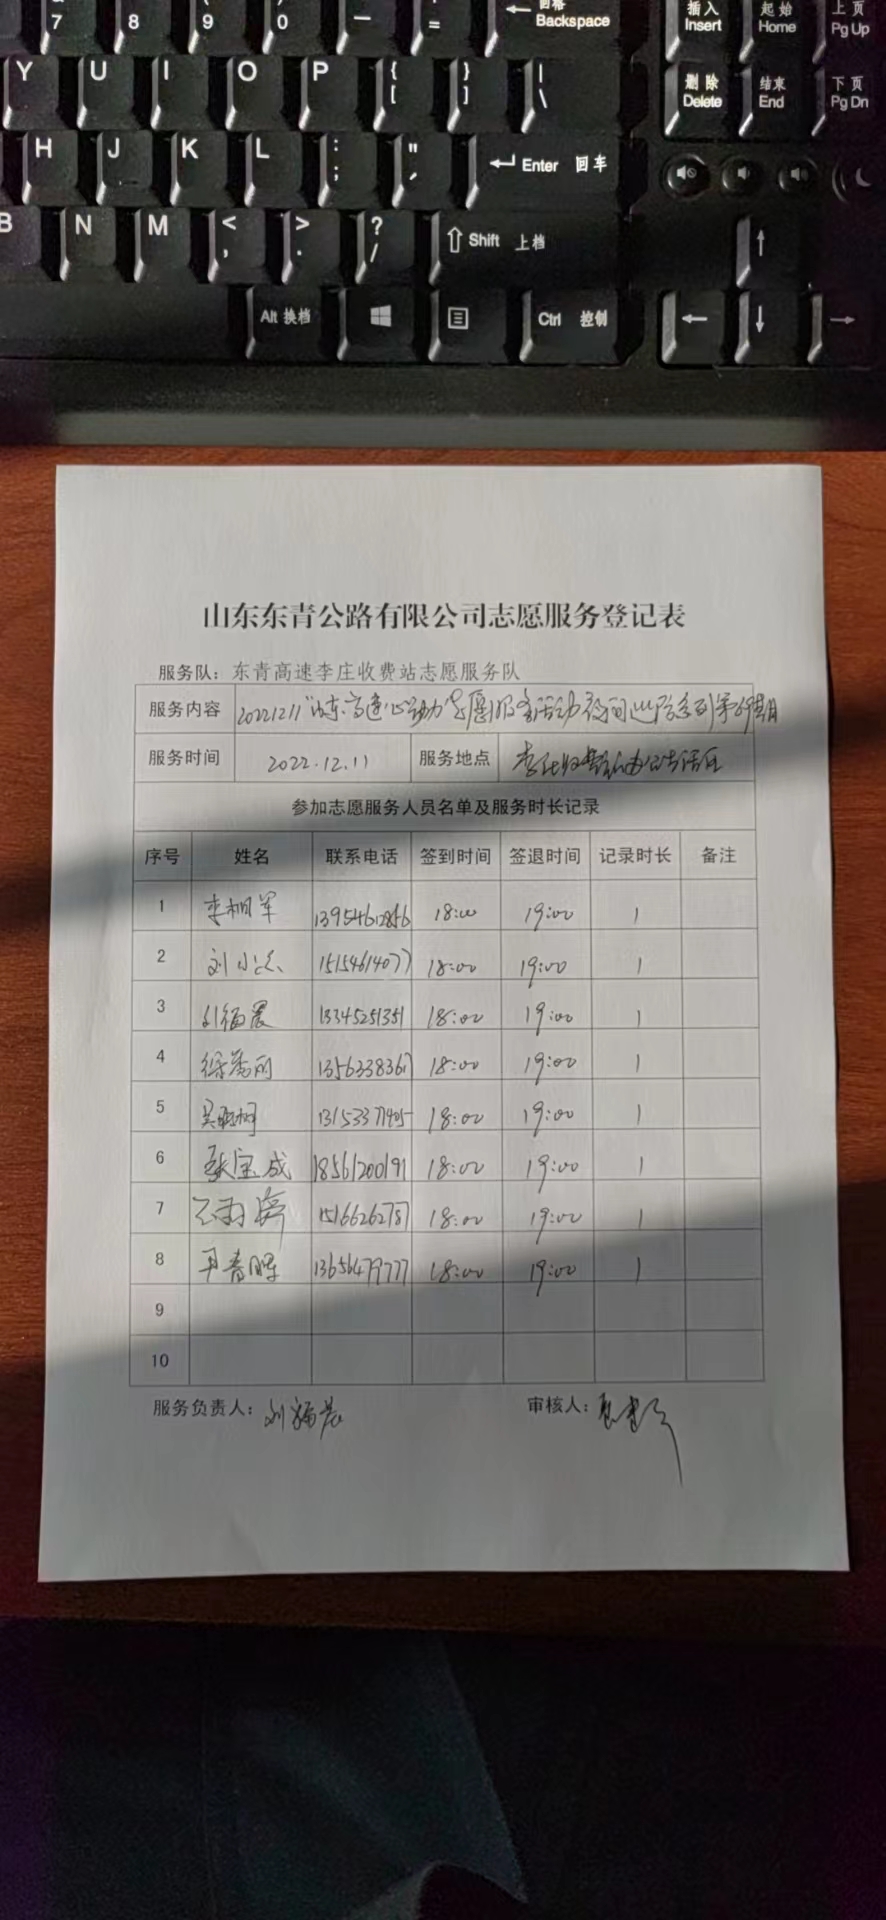 7 8 9 0 — = Backspace 插入 Insert 起始 Home 上页 Pg Up
Y U I O P { [ } ] | \ 删除 Delete 结束 End 下页 Pg Dn
H J K L : ; " ' Enter 回车
B N M < , > . ? / Shift 上档
Alt 换档 Ctrl 控制
山东东青公路有限公司志愿服务登记表
服务队：东青高速李庄收费站志愿服务队
服务内容 20221211"山东高速心动力"志愿服务活动 夜间巡 系列第 期
服务时间 2022.12.11 服务地点
参加志愿服务人员名单及服务时长记录
序号 姓名 联系电话 签到时间 签退时间 记录时长 备注
1 李相军 13954612856 18:00 19:00 1
2 刘小 15154614077 18:00 19:00 1
3 刘福晨 13345251351 18:00 19:00 1
4 徐秀丽 1356338367 18:00 19:00 1
5 吴 13153377405 18:00 19:00 1
6 张宝成 18561200191 18:00 19:00 1
7 15166262787 18:00 19:00 1
8 青晖 13656479777 18:00 19:00 1
9
10
服务负责人：刘福晨 审核人：